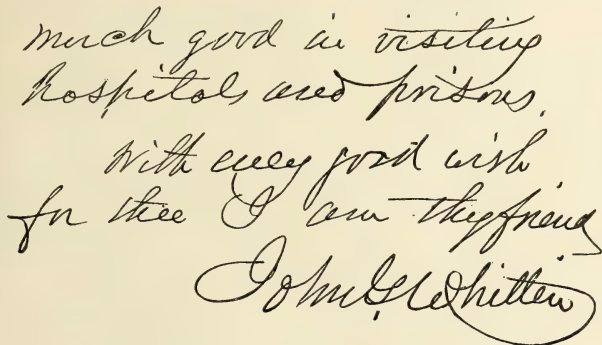 much good in visiting
hospitals and prisons.
With every good wish
for thee I am thy friend
John G. Whittier